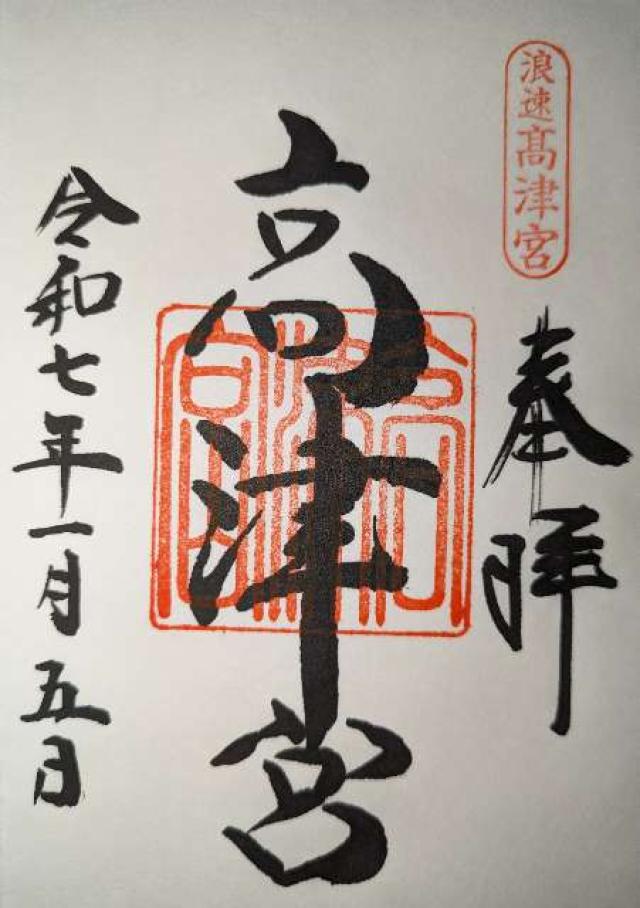 浪速高津宮
奉拝
高津宮
高津宮
令和七年一月五日